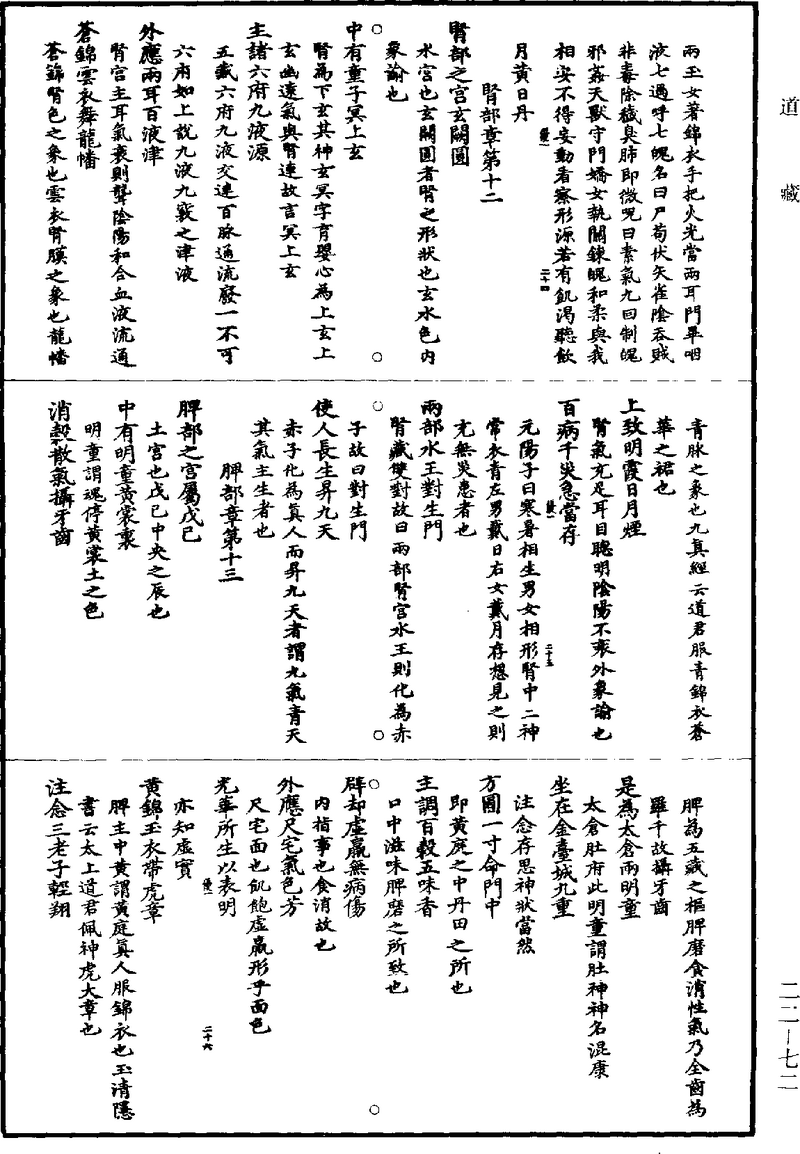 道藏
兩玉女著錦衣手把火光當兩耳門畢咽
液七過呼七魄名曰尸苟伏矢雀陰吞賊
非毒除穢臭肺即微呪曰素氣九回制魄
邪姦天獸守門嬌女執關鍊魄和柔與我
相安不得妄動看察形源若有飢渴聽飲
月黃日丹
二十四
腎部章第十二
腎部之宮玄闕圓
水宮也玄闕圓者腎之形狀也玄水色内
象諭也
中有童子冥上玄
腎為下玄其神玄冥字育嬰心為上玄上
玄幽遠氣與腎連故言冥上玄
主諸六府九液源
五藏六府九液交連百脉通流廢一不可
六府如上說九液九竅之津液
外應兩耳百液津
腎宮主耳氣衰則聾陰陽和合血液流通
蒼錦雲衣舞龍幡
蒼錦腎色之象也雲衣腎膜之象也龍幡
青脉之象也九真經云道君服青錦衣蒼
華之裙也
上致明霞日月煙
腎氣充足耳目聰明陰陽不衰外象諭也
百病千災急當存
二十五
元陽子曰寒暑相生男女相形腎中二神
常衣青左男戴日右女戴月存想見之則
尤無災患者也
兩部水王對生門
腎藏雙對故曰兩部腎宮水王則化為赤
子故曰對生門
使人長生昇九天
赤子化為真人而昇九天者謂九氣青天
其氣主生者也
脾部章第十三
脾部之宮屬戊己
土宮也戊己中央之辰也
中有明童黃裳裏
明童謂魂停黃裳土之色
消穀散氣攝牙齒
脾為五藏之樞脾磨食消性氣乃全齒為
羅千故攝牙齒
是為太倉兩明童
太倉肚府此明童謂肚神神名混康
坐在金臺城九重
注念存思神狀當然
方圓一寸命門中
即黃庭之中丹田之所也
主調百穀五味香
口中滋味脾磨之所致也
辟却虛羸無病傷
内指事也食消故也
外應尺宅氣色芳
尺宅面也飢飽虛羸形乎面色
光華所生以表明
二十六
亦知虛實
黃錦玉衣帶虎章
脾主中黃謂黃庭真人服錦衣也玉清隱
書云太上道君佩神虎大章也
注念三老子輕翔
二二—七二